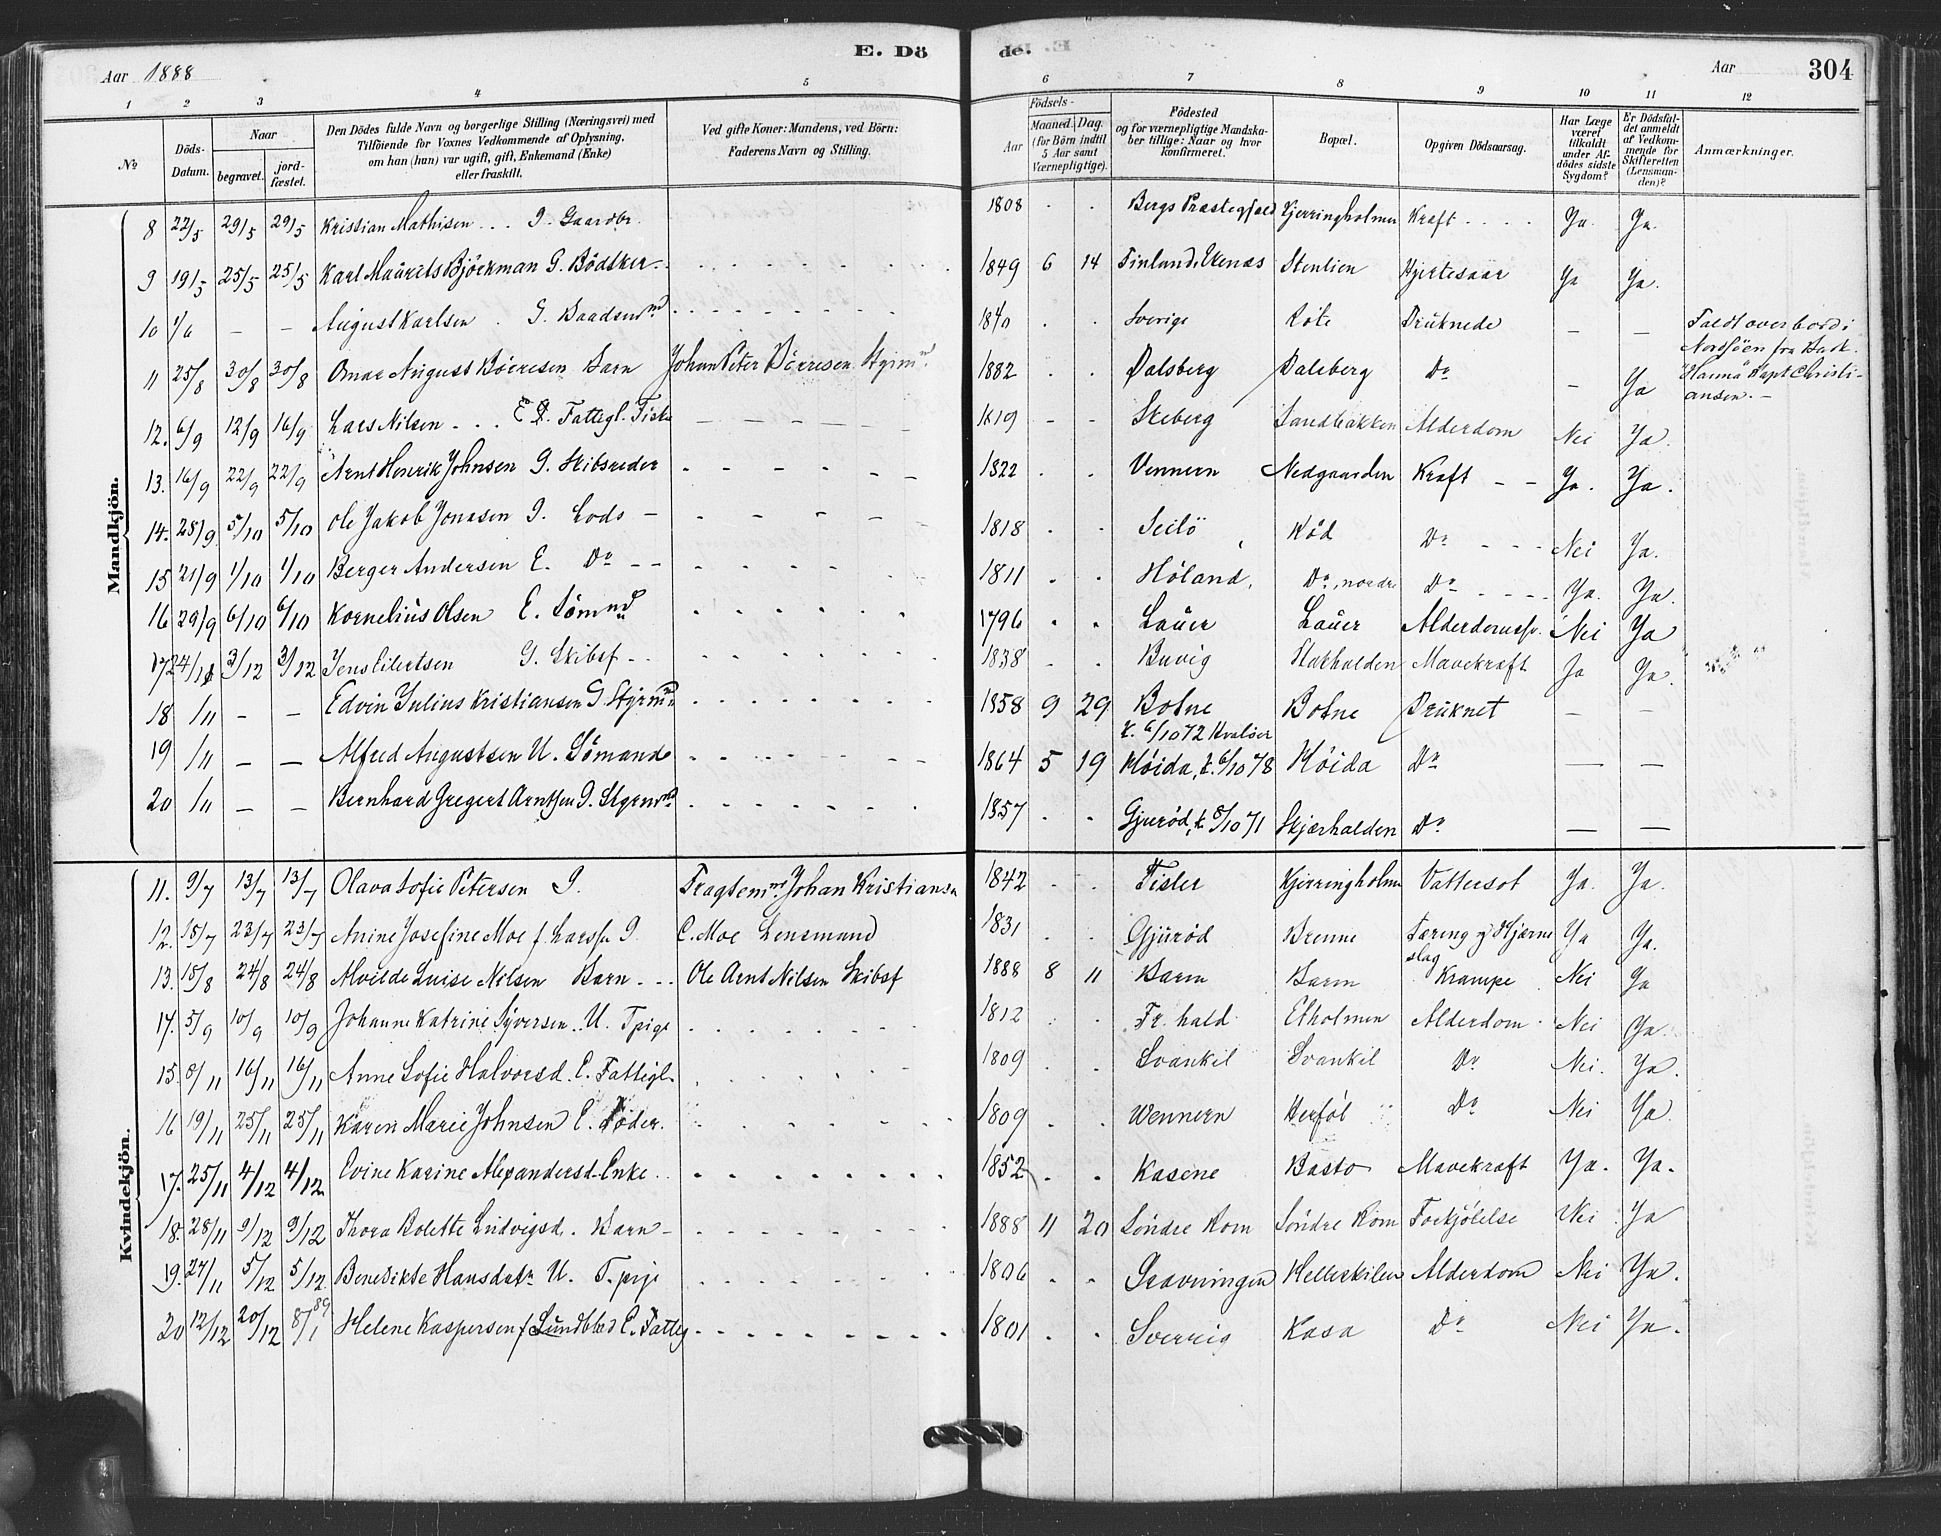 E. Dö
de.
Aar 1888
Aar
304
1 2 3 4 5 6 7 8 9 10 11 12
No
Döds-Datum.
Naar
begravet.
jord-fæstet.
Den Dödes fulde Navn og borgerlige Stilling (Næringsvei) med
Tilföiende for Voxnes Vedkommende af Oplysning,
om han (hun) var ugift, gift, Enkemand (Enke)
eller fraskilt.
Ved gifte Koner: Mandens, ved Börn:
Faderens Navn og Stilling.
Födsels-
Aar
Maaned. Dag.
(for Börn indtil
5 Aar samt
Værnepligtige).
Födested
og for værnepligtige Mandska-
ber tillige: Naar og hvor
konfirmeret.
Bopæl.
Opgiven Dödsaarsag.
Har Læge
været
tilkaldt
under Af-
dödes sidste
Sygdom?
Er Dödsfal-
det anmeldt
af Vedkom-
mende for
Skifteretten
(Lensman-
den)?
Anmærkninger.
Mandkjön.
8 22/5 29/5 29/5 Kristian Mathisen . . . G. Gaardbr. 1808 . . Bergs Præstegjæld Kjerringholmen Kraft . . . . Ja. Ja.
9 19/5 25/5 25/5 Karl Maurits Björkman G. Bödtker 1849 6 14 Finland, Ekenæs Stenlien Hjertesaar Ja Ja.
10 1/6 — — August Karlsen . G. Baadsmd 1840 . . Sverige Röte Druknede — — Faldt overbord i
Nordsöen fra Bark.
Hanna Kapt Christi-
ansen. —
11 25/8 30/8 30/8 Omar August Börresen Barn Johan Peter Börresen Styrmd 1882 . . Dalsberg Dalsberg Do — Ja
12. 6/9 12/9 16/9 Lars Nilsen . . . E Fattegl. Fisker 1819 - - Skeberg Sandbakken Alderdom Nei Ja.
13. 16/9 22/9 22/9 Arnt Henrik Johnsen G. Skibsreder 1822 . . Vennern Nedgaarden Kraft — — Ja. Ja.
14. 28/9 5/10 5/10 Ole Jakob Jonasen G. Lods — 1818 . . Seilö Röd Do - - - Nei Ja.
15 21/9 1/10 1/10 Berger Andersen E. Do — — 1811 . . Höland, Do, nordre Do - - - - Ja. Ja.
16 29/9 6/10 6/10 Kornelius Olsen E. Sömnd 1796 . . Lauer Lauer Alderdomssv. Nei Ja
17 24/11 3/12 3/12 Jens Eilertsen G. Skibsf - - 1838 . . Buvig Hakhalden Mavekraft Ja Ja.
18 /11 — — Edvin Julius Kristiansen G. Styrmd 1858 9 29 Botne Botne Druknet — —
k. 6/10 72 Hvalöer
19 /11 — — Alfred Augustsen U. Sömand 1864 5 19 Höida, k. 6/10 78 Höida Do — —
20 /11 — — Bernhard Gregert Arntsen G. Styrmd 1857 . . Gjuröd, k 8/10 71 Skjærhalden Do — —
Kvindekjön.
11. 9/7 13/7 13/7 Olava Sofie Petersen G. Fragtemd. Johan Kristiansen 1842 . . Tisler Kjerringholm Vattersot Ja. Ja.
12. 15/7 23/7 23/7 Anine Josefine Moe f. Larssen G. C. Moe Lensmand 1831 . . Gjuröd Brenne Tæring og Hjerne Ja Ja.
slag
13. 15/8 24/8 24/8 Alvilde Luise Nilsen Barn - . . Ole Arnt Nilsen Skibsf 1888 8 11 Barm Barm Krampe Nei Ja
17. 5/9 10/9 10/9 Johanne Katrine Syversen . . U. Tpige 1812 . . Fr. hald Etholmen Alderdom Nei Ja.
15. 8/11 16/11 16/11 Anne Sofie Halvorsd. E. Fattigl. 1809 . . Svankil Svankil Do Nei. Ja.
16 19/11 25/11 25/11 Karen Marie Johnsen E. Föder. 1809 . . Wennern Herföl Do Nei Ja.
17. 25/11 4/12 4/12 Evine Karine Alexandersd. Enke 1852 . . Kasene Basto Mavekraft Ja. Ja.
18. 28/11 9/12 9/12 Thora Bolette Ludvigsd. Barn - 1888 11 20 Söndre Rom Söndre Rom Forkjölelse Nei Ja
19. 27/11 5/12 5/12 Benedikte Hansdatr U. T. pige 1806 . . Gravningen Hellerkilen Alderdom Nei Ja.
20 12/12 20/12 8/1 89 Helene Kaspersen f. Lundblad E. Fattig 1801 . . Sverrig Kasa Do Nei Ja.